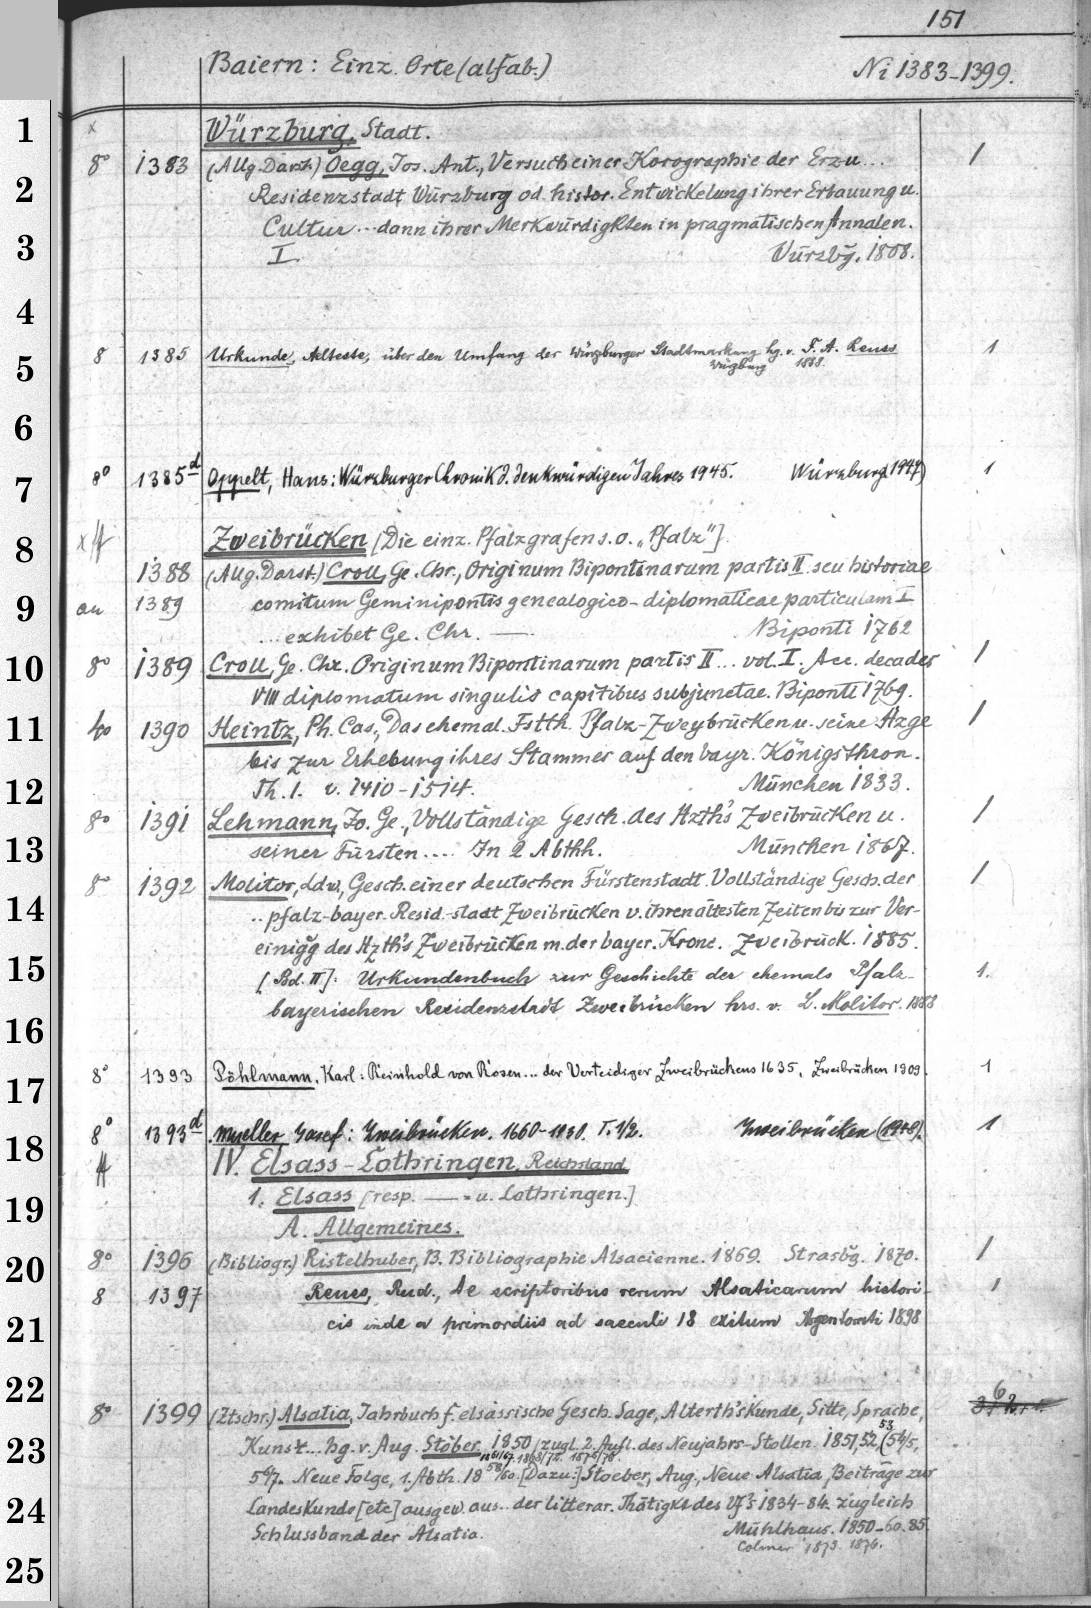 151
Baiern: Einz. Orte (alfab.) Ni 1383-1399.
1 x Würzburg, Stadt.
8° 1383 (Allg. Darst.) Oegg, Jos. Ant., Versuch einer Korographie der Erz-u... 1
2 Residenzstadt Würzburg od. histor. Entwickelung ihrer Erbauung u.
Cultur ... dann ihrer Merkwürdigkten in pragmatischen Annalen.
3 I. Würzbg. 1808.
4
8 1385 Urkunde, Aelteste, über den Umfang der Würzburger Stadtmarkung hg. v. F. A. Reuss 1
5 Würzburg 1838.
6
8° 1385d Oppelt, Hans: Würzburger Chronik d. denkwürdigen Jahres 1945. Würzburg (1947) 1
7
8 x Zweibrücken [Die einz. Pfalzgrafen s. o. „Pfalz"]
1388 (Allg. Darst.) Croll, Ge. Chr., Originum Bipontinarum partis II seu historiae
9 an 1389 comitum Geminipontis genealogico-diplomaticae particulam I
... exhibet Ge. Chr. —. Biponti 1762
10 8° 1389 Croll, Ge. Chr. Originum Bipontinarum partis II ... vol. I. Acc. decades 1
VIII diplomatum singulis capitibus subjunctae. Biponti 1769.
11 4o 1390 Heintz, Ph. Cas., Das ehemal. Fstth. Pfalz-Zweybrücken u. seine Hzge 1
bis zur Erhebung ihres Stammes auf den bayr. Königsthron.
12 Th. 1. v. 1410-1514. München 1833.
8° 1391 Lehmann, Jo. Ge., Vollständige Gesch. des Hzth's Zweibrücken u. 1
13 seiner Fürsten .... In 2 Abthh. München 1867.
8° 1392 Molitor, Ldw., Gesch. einer deutschen Fürstenstadt. Vollständige Gesch. der 1
14 .. pfalz-bayer. Resid.-stadt Zweibrücken v. ihren ältesten Zeiten bis zur Ver-
einigg des Hzth's Zweibrücken m. der bayer. Krone. Zweibrück. 1885.
15 [Bd. II]: Urkundenbuch zur Geschichte der ehemals Pfalz- 1.
bayerischen Residenzstadt Zweibrücken hrs. v. L. Molitor. 1888
16
8° 1393 Pöhlmann, Karl: Reinhold von Rosen ... der Verteidiger Zweibrückens 1635, Zweibrücken 1909. 1
17
8° 1393d Mueller Josef: Zweibrücken. T. 1/2. Zweibrücken 1
18 IV. Elsass-Lothringen, Reichsland
19 1. Elsass [resp. — - u. Lothringen.]
A. Allgemeines.
20 8° 1396 (Bibliogr.) Ristelhuber, B. Bibliographie Alsacienne. 1869. Strasbg. 1870. 1
8 1397 Reuss, Rud., de scriptoribus rerum Alsaticarum histori- 1
21 cis inde a primordiis ad saeculi 18 exitum Argentorati 1898
22 6
8° 1399 (Ztschr.) Alsatia, Jahrbuch f. elsässische Gesch. Sage, Alterth's Kunde, Sitte, Sprache,
23 Kunst... hg. v. Aug. Stöber 1850 / zugl. 2. Aufl. des Neujahrs-Stollen. 1851, 52, 53 (54/5,
56/7. Neue Folge, 1. Abth. 18 58/60. [Dazu:] Stoeber, Aug., Neue Alsatia, Beiträge zur
24 Landeskunde [etc] ausgew. aus... der litterar. Thätigkt des Vf's 1834-84. Zugleich
Schlussband der Alsatia. Mühlhaus. 1850-60. 85.
25 Colmar 1873. 1876.